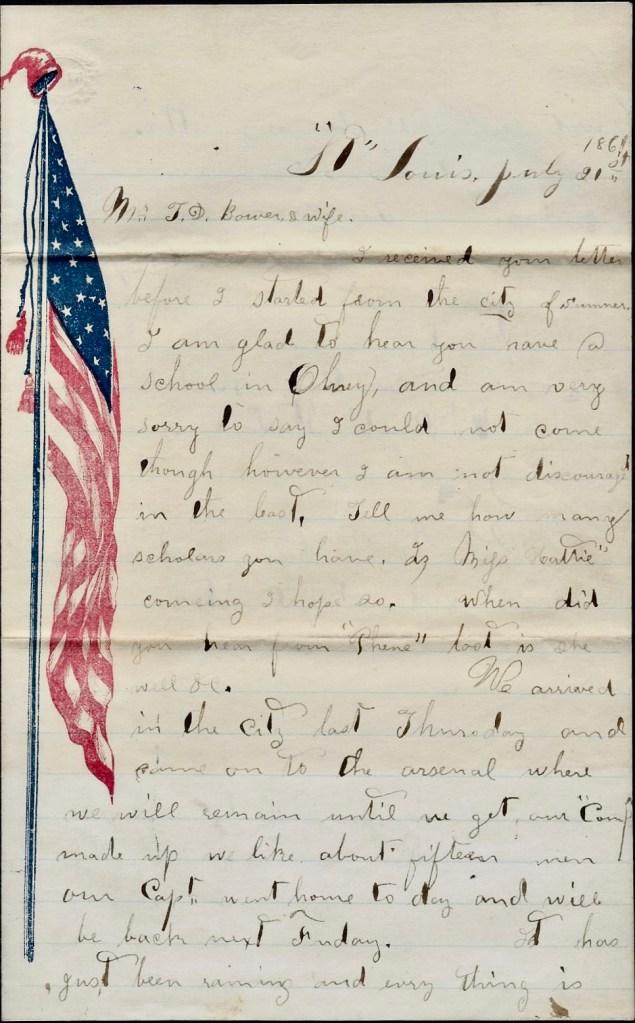 "St" Louis, July 21st 1861
Mr. T. D. Bowers & wife.
I received your letter
before I started from the city of Sumner.
I am glad to hear you have a
school in Olney, and am very
sorry to say I could not come
though however I am not discouragd
in the least. Tell me how many
scholars you have. Is Miss "Hattie"
comeing I hope so. When did
you hear from "Phene" last is she
well &c. We arrived
in the city last Thursday and
came on to the arsenal where
we will remain until we get our "Comp
made up we like about fifteen men
our Capt. went home to day and will
be back next Friday. It has
just been raining and every thing is